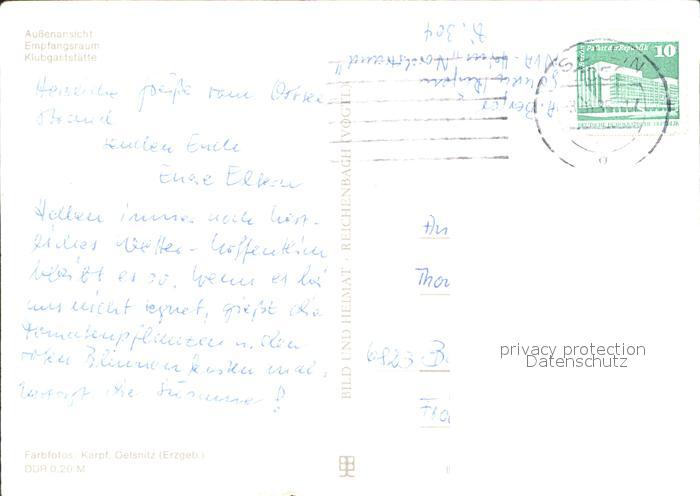 Außenansicht
Empfangsraum
Klubgaststätte
Herzliche Grüße vom Ostsee
strand
senden Euch
Eure Eltern
Haben immer noch herr-
liches Wetter - hoffentlich
bleibt es so. Wenn es bei
uns nicht regnet, gießt die
Tomatenpflanzen u. den
roten Blumenkasten und
die
Farbfotos: Karpf, Oelsnitz (Erzgeb.)
DDR 0,20 M
BILD UND HEIMAT · REICHENBACH (VOGTL)
Berger
"Nordstrand"
Palast der Republik
10
DEUTSCHE DEMOKRATISCHE REPUBLIK
An
6823
privacy protection
Datenschutz